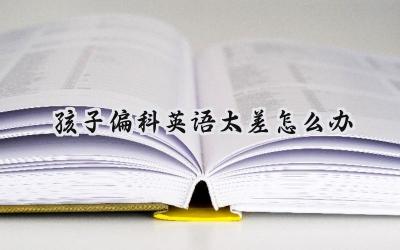 孩子偏科英语太差怎么办